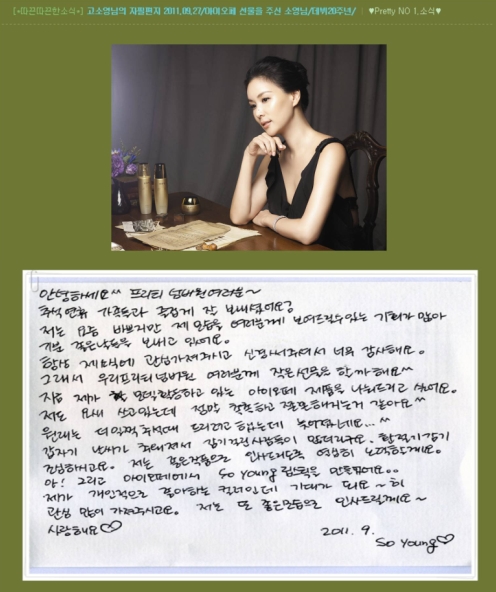 [*따끈따끈한소식*] 고소영님의 자필편지 2011.09.27/아이오페 선물을 주신 소영님/데뷔20주년/ | ♥Pretty NO 1.:소식♥
안녕하세요^^ 프리티 넘버원여러분~
추석연휴 가족들과 즐겁게 잘 보내셨어요?
저는 요즘 바쁘지만 제 모습을 여러분께 보여드릴수있는 기회가 많아
기분 좋은날들을 보내고 있어요.
항상 제 소식에 관심가져주시고 신경써주셔서 너무 감사해요.
그래서 우리프리티넘버원 여러분께 작은선물을 할까해요^^
지금 제가 모델 활동하고 있는 아이오페 제품을 나눠드리고 싶어요.
저는 요새 쓰고있는데 정말 촉촉하고 좋은거 같아요^^
원래는 더 일찍 추석때 드리려고 했는데 늦어졌네요...^^
갑자기 날씨가 추워져서 감기걸린사람들이 많더라구요. 환절기감기
조심하시고요. 저는 좋은작품으로 인사드리도록 열심히 노력할게요.
아! 그리고 아이오페에서 So Young 립스틱을 만들었어요..
제가 개인적으로 좋아하는 컬러인데 기대가 되요~히
관심 많이 가져주시고요. 저는 또 좋은모습으로 인사드릴께요~
사랑해요♡
2011. 9.
So Young♡